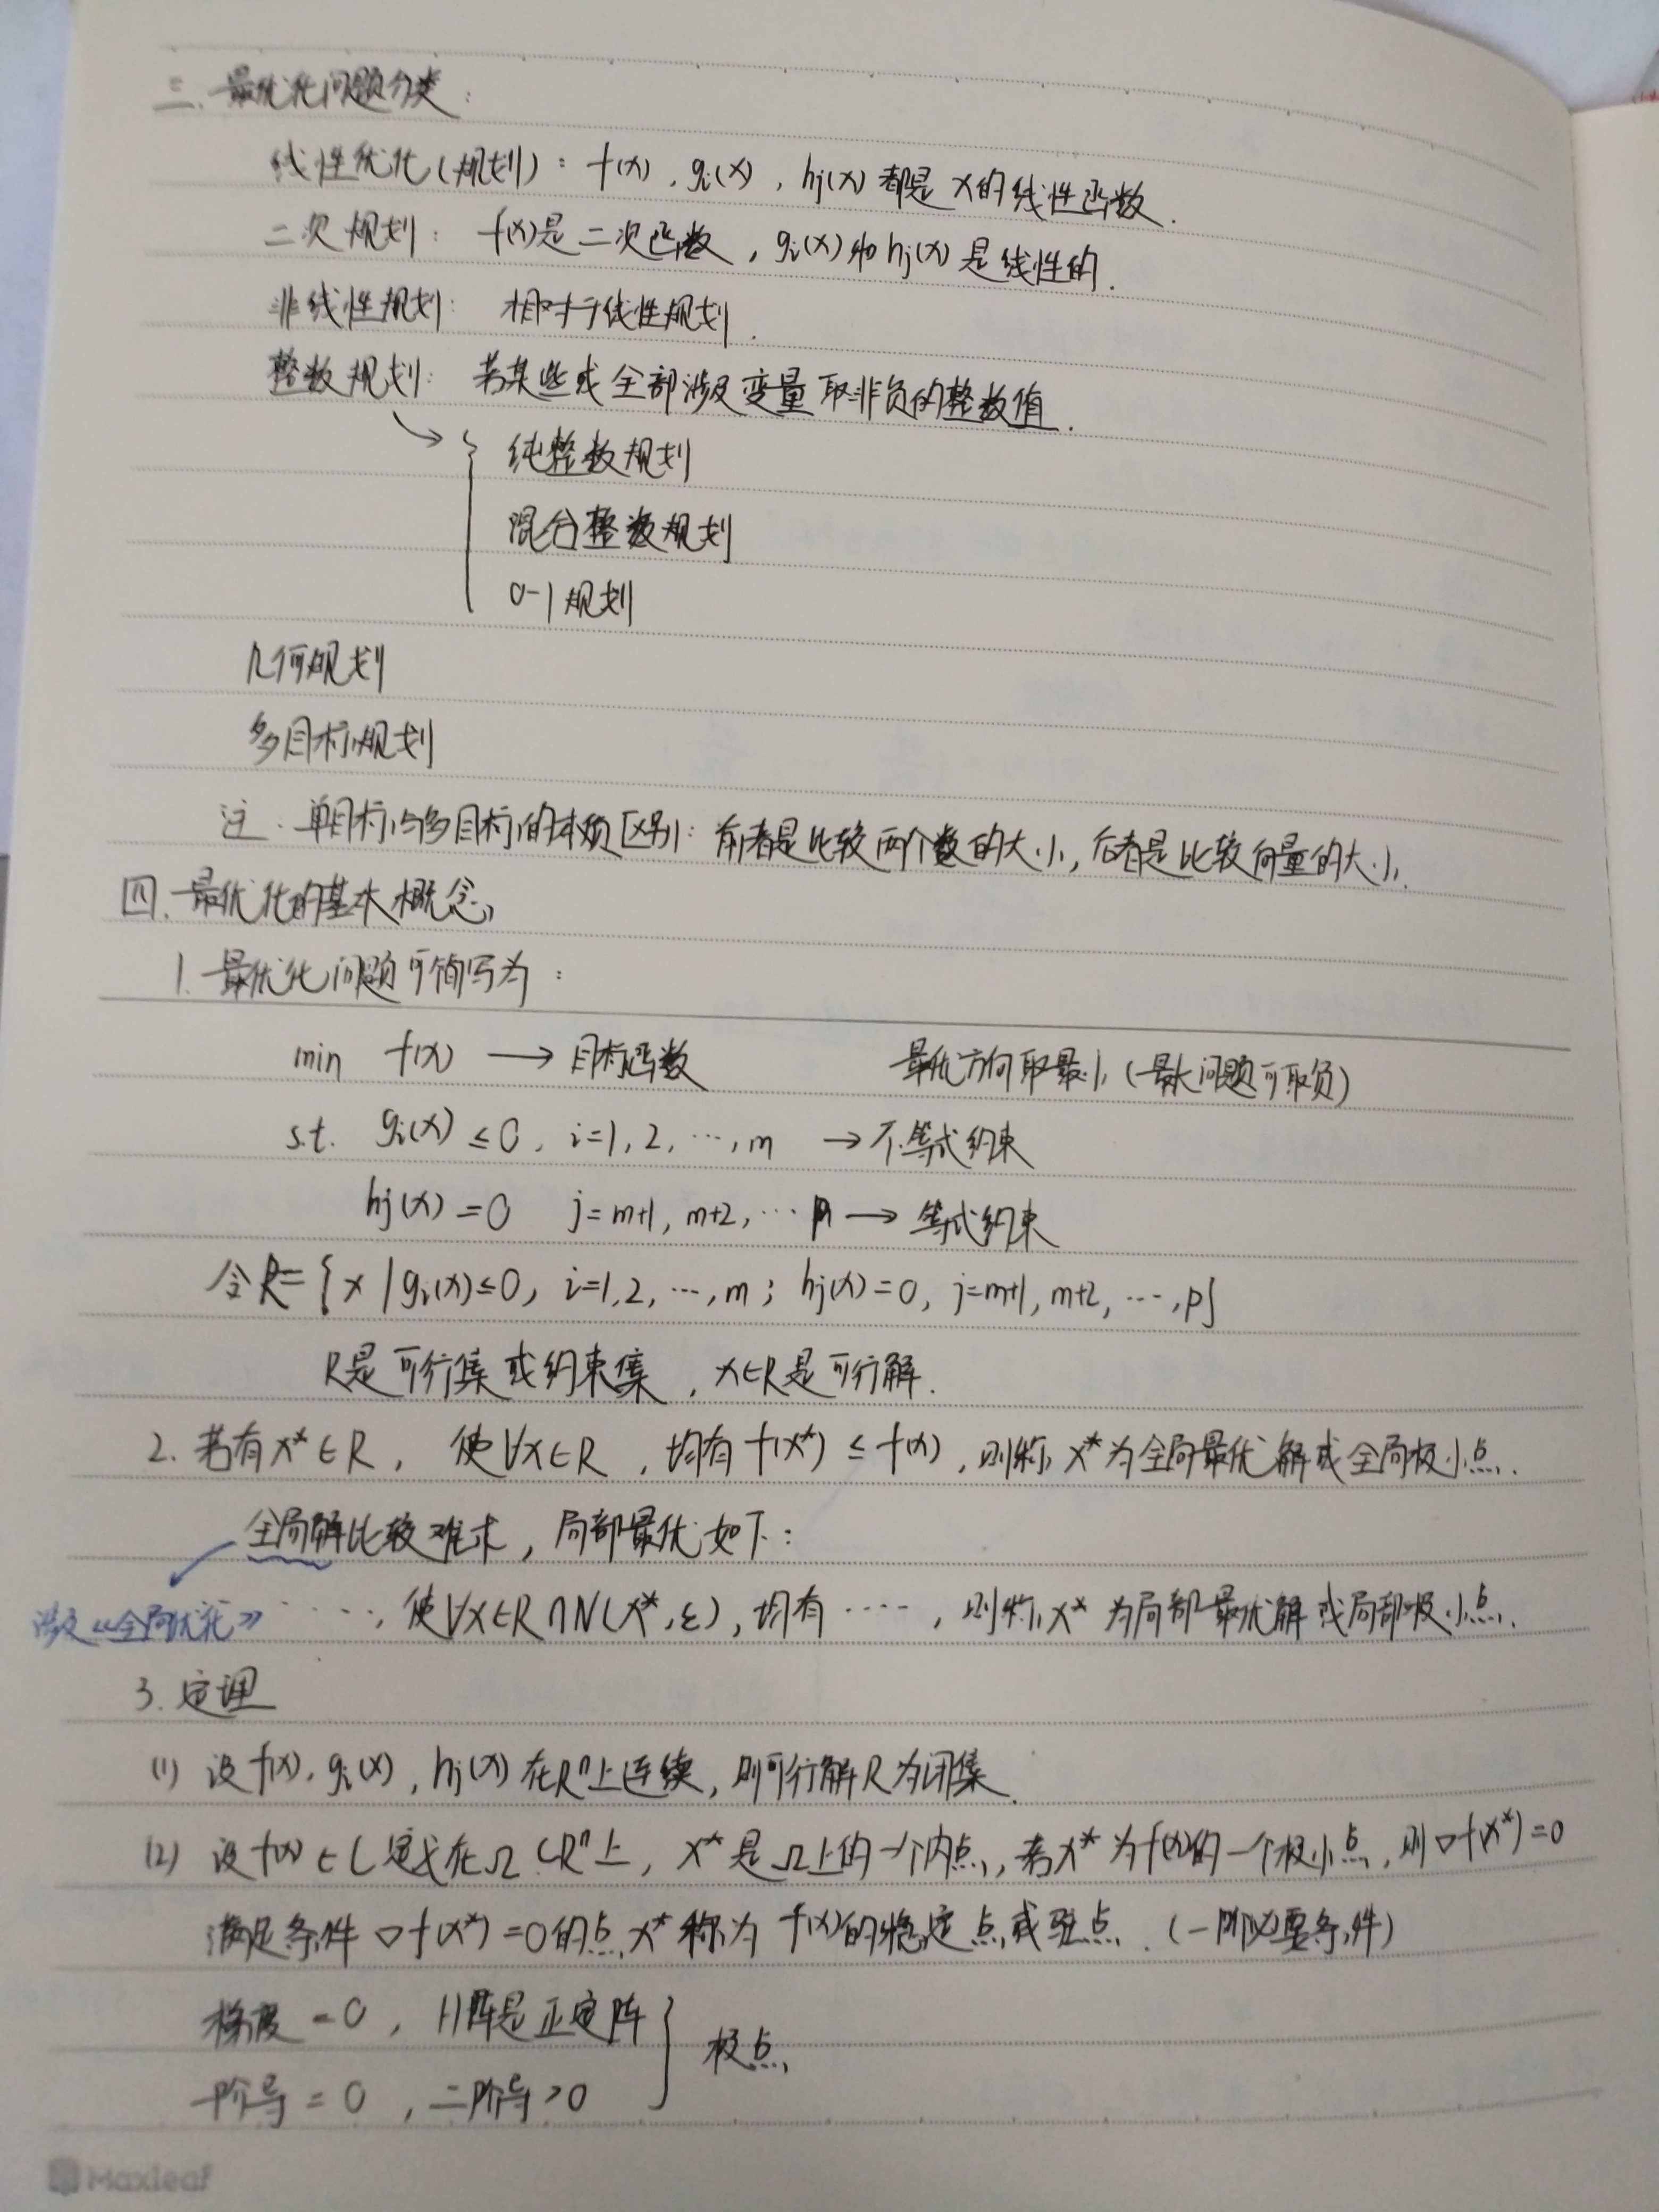 三. 最优化问题分类:
线性优化(规划): f(x), gi(x), hj(x)都是x的线性函数.
二次规划: f(x)是二次函数, gi(x)和hj(x)是线性的.
非线性规划: 相对于线性规划.
整数规划: 若某些或全部涉及变量取非负的整数值.
→ { 纯整数规划
混合整数规划
0-1规划
几何规划
多目标规划
注: 单目标与多目标的本质区别: 前者是比较两个数的大小, 后者是比较向量的大小.
四. 最优化的基本概念
1. 最优化问题可简写为:
min f(x) → 目标函数 最优方向取最小(最大问题可取负)
s.t. gi(x) ≤ 0, i=1, 2, ⋯, m → 不等式约束
hj(x) = 0 j=m+1, m+2, ⋯ p → 等式约束
令R={x | gi(x)≤0, i=1,2, ⋯, m; hj(x)=0, j=m+1, m+2, ⋯, p}
R是可行集或约束集, x∈R是可行解.
2. 若有x*∈R, 使∀x∈R, 均有f(x*) ≤ f(x), 则称x*为全局最优解或全局极小点.
全局解比较难求, 局部最优如下:
涉及《全局优化》 ⋯⋯, 使∀x∈R∩N(x*, ε), 均有⋯⋯, 则称x*为局部最优解或局部极小点.
3. 定理
(1) 设f(x), gi(x), hj(x)在Rⁿ上连续, 则可行解R为闭集.
(2) 设f(x)∈C定义在Ω⊂Rⁿ上, x*是Ω上的一个内点, 若x*为f(x)的一个极小点, 则▽f(x*)=0
满足条件▽f(x*)=0的点x*称为f(x)的稳定点或驻点. (一阶必要条件)
梯度=0, H阵是正定阵 } 极点
一阶导=0, 二阶导>0
Maxleaf